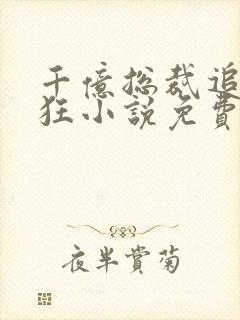 千億總裁追
狂小說免費
夜半賞菊